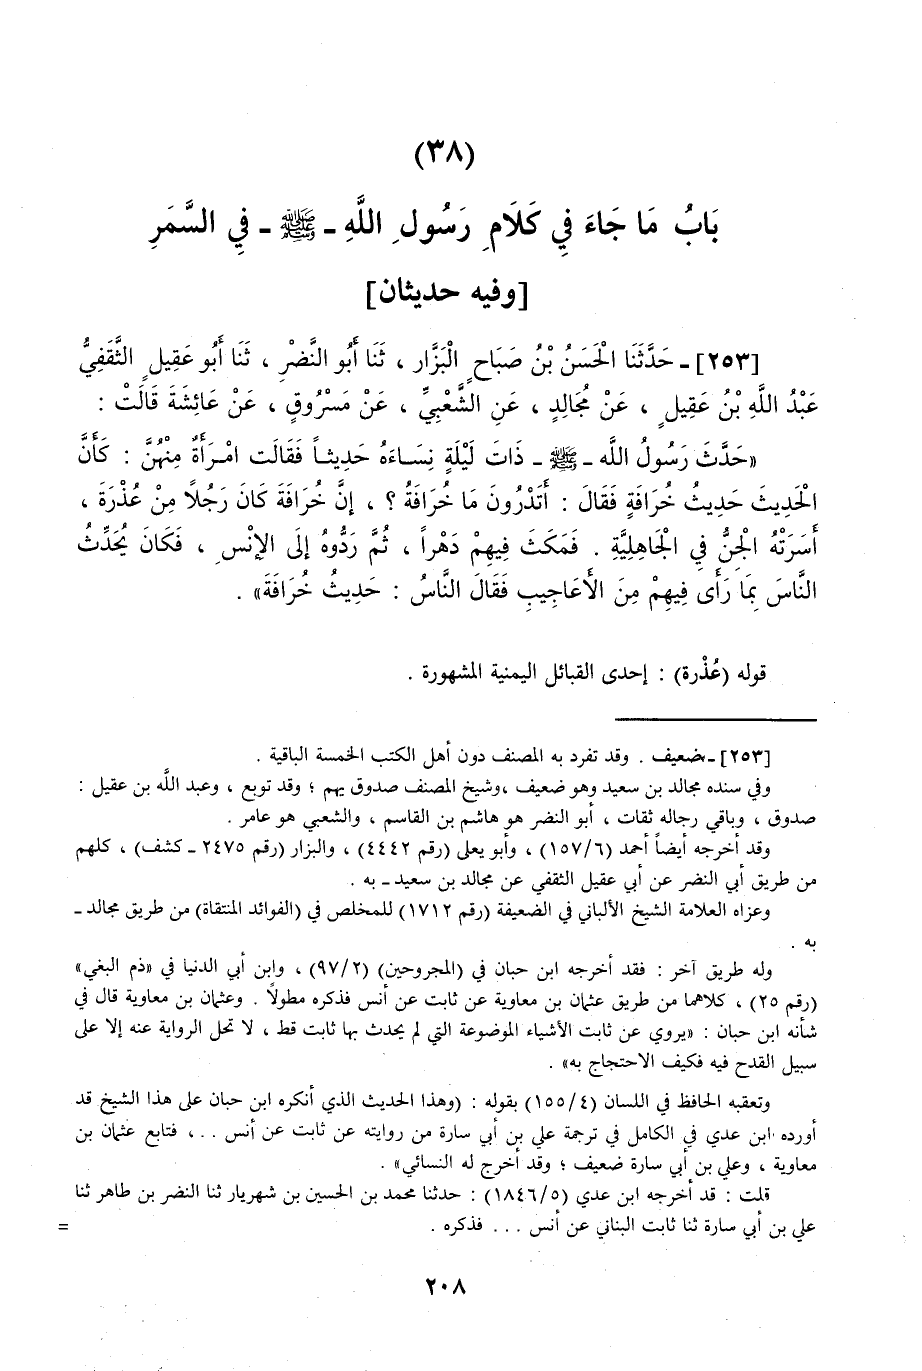 (٣٨)
بَابُ مَا جَاءَ فِي كَلَامِ رَسُولِ اللَّهِ - ﷺ - فِي السَّمَرِ
[وفيه حديثان]
[٢٥٣] - حَدَّثَنَا الْحَسَنُ بْنُ صَبَاحٍ الْبَزَّار ، ثَنَا أَبُو النَّضْرِ ، ثَنَا أَبُو عَقِيلٍ الثَّقَفِيُّ
عَبْدُ اللَّهِ بْنُ عَقِيلٍ ، عَنْ مُجَالِدٍ ، عَنِ الشَّعْبِيِّ ، عَنْ مَسْرُوقٍ ، عَنْ عَائِشَةَ قَالَتْ :
«حَدَّثَ رَسُولُ اللَّه - ﷺ - ذَاتَ لَيْلَةٍ نِسَاءَهُ حَدِيثاً فَقَالَت امْرَأَةٌ مِنْهُنَّ : كَأَنَّ
الْحَدِيثَ حَدِيثُ خُرَافَةٍ فَقَالَ : أَتَدْرُونَ مَا خُرَافَةُ ؟ ، إِنَّ خُرَافَةَ كَانَ رَجُلًا مِنْ عُذْرَةَ ،
أَسَرَتْهُ الْجِنُّ فِي الْجَاهِلِيَّةِ . فَمَكَثَ فِيهِمْ دَهْراً ، ثُمَّ رَدُّوهُ إِلَى الإِنْسِ ، فَكَانَ يُحَدِّثُ
النَّاسَ بِمَا رَأَى فِيهِمْ مِنَ الأَعَاجِيبِ فَقَالَ النَّاسُ : حَدِيثُ خُرَافَةَ» .
قوله (عُذْرة) : إحدى القبائل اليمنية المشهورة .
[٢٥٣] - ضعيف . وقد تفرد به المصنف دون أهل الكتب الخمسة الباقية .
وفي سنده مجالد بن سعيد وهو ضعيف ، وشيخ المصنف صدوق يهم ؛ وقد توبع ، وعبد الله بن عقيل :
صدوق ، وباقي رجاله ثقات ، أبو النضر هو هاشم بن القاسم ، والشعبي هو عامر .
وقد أخرجه أيضاً أحمد (١٥٧/٦) ، وأبو يعلى (رقم ٤٤٤٢) ، والبزار (رقم ٢٤٧٥ - كشف) ، كلهم
من طريق أبي النضر عن أبي عقيل الثقفي عن مجالد بن سعيد - به .
وعزاه العلامة الشيخ الألباني في الضعيفة (رقم ١٧١٢) للمخلص في (الفوائد المنتقاة) من طريق مجالد -
به .
وله طريق آخر : فقد أخرجه ابن حبان في (المجروحين) (٩٧/٢) ، وابن أبي الدنيا في «ذم البغي»
(رقم ٢٥) ، كلاهما من طريق عثمان بن معاوية عن ثابت عن أنس فذكره مطولاً . وعثمان بن معاوية قال في
شأنه ابن حبان : «يروي عن ثابت الأشياء الموضوعة التي لم يحدث بها ثابت قط ، لا تحل الرواية عنه إلا على
سبيل القدح فيه فكيف الاحتجاج به» .
وتعقبه الحافظ في اللسان (١٥٥/٤) بقوله : (وهذا الحديث الذي أنكره ابن حبان على هذا الشيخ قد
أورده ابن عدي في الكامل في ترجمة علي بن أبي سارة من روايته عن ثابت عن أنس ... ، فتابع عثمان بن
معاوية ، وعلي بن أبي سارة ضعيف ؛ وقد أخرج له النسائي» .
قلت : قد أخرجه ابن عدي (١٨٤٦/٥) : حدثنا محمد بن الحسين بن شهريار ثنا النضر بن طاهر ثنا
علي بن أبي سارة ثنا ثابت البناني عن أنس ... فذكره . =
٢٠٨